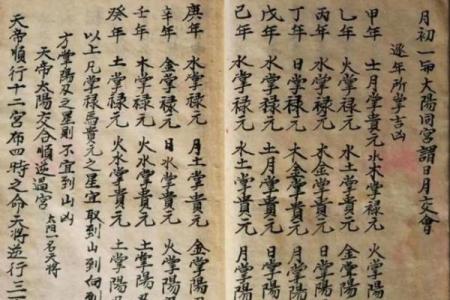 月初一節太陽同宮謂日月交會
逐年所掌吉凶
甲年 土月掌貴元 水木掌祿元 火掌陽
乙年 火掌祿元 水土掌貴元 金掌陽
丙年 水掌祿元 水金掌貴元 日掌陽
丁年 日掌祿元 火金掌貴元 水掌陽
戊年 水掌祿元 土月掌貴元 日掌陽
己年 水掌祿元 水土掌貴元 月掌陽
庚年 金掌祿元 月土掌貴元 金掌陽
辛年 金掌祿元 日水掌貴元 火掌陽
壬年 木掌祿元 火水掌貴元 土掌陽
癸年 土掌祿元 火水掌貴元 土掌陽
以上凡掌祿馬貴元之星宜取到山到向
方掌陽刃之星則不宜到山凶
天帝太陽交合順逆過宮 太陽一名天將
天帝順行十二宮布四時之令天將逆行三